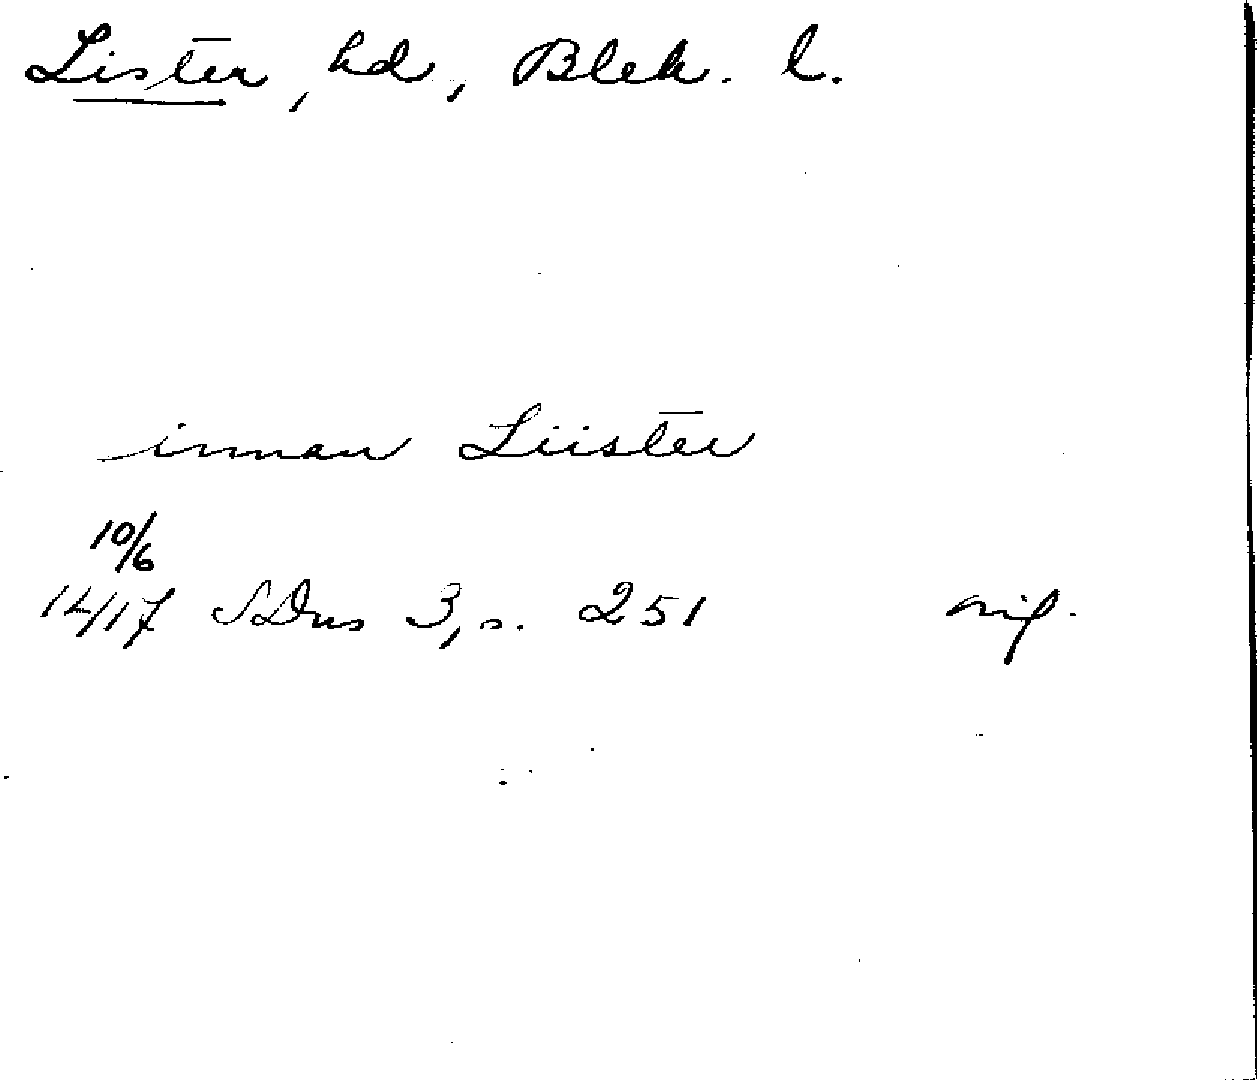 Lister, hd, Blek. l.
innan Liister
10/6
1417 SDns 3, s. 251 orig.